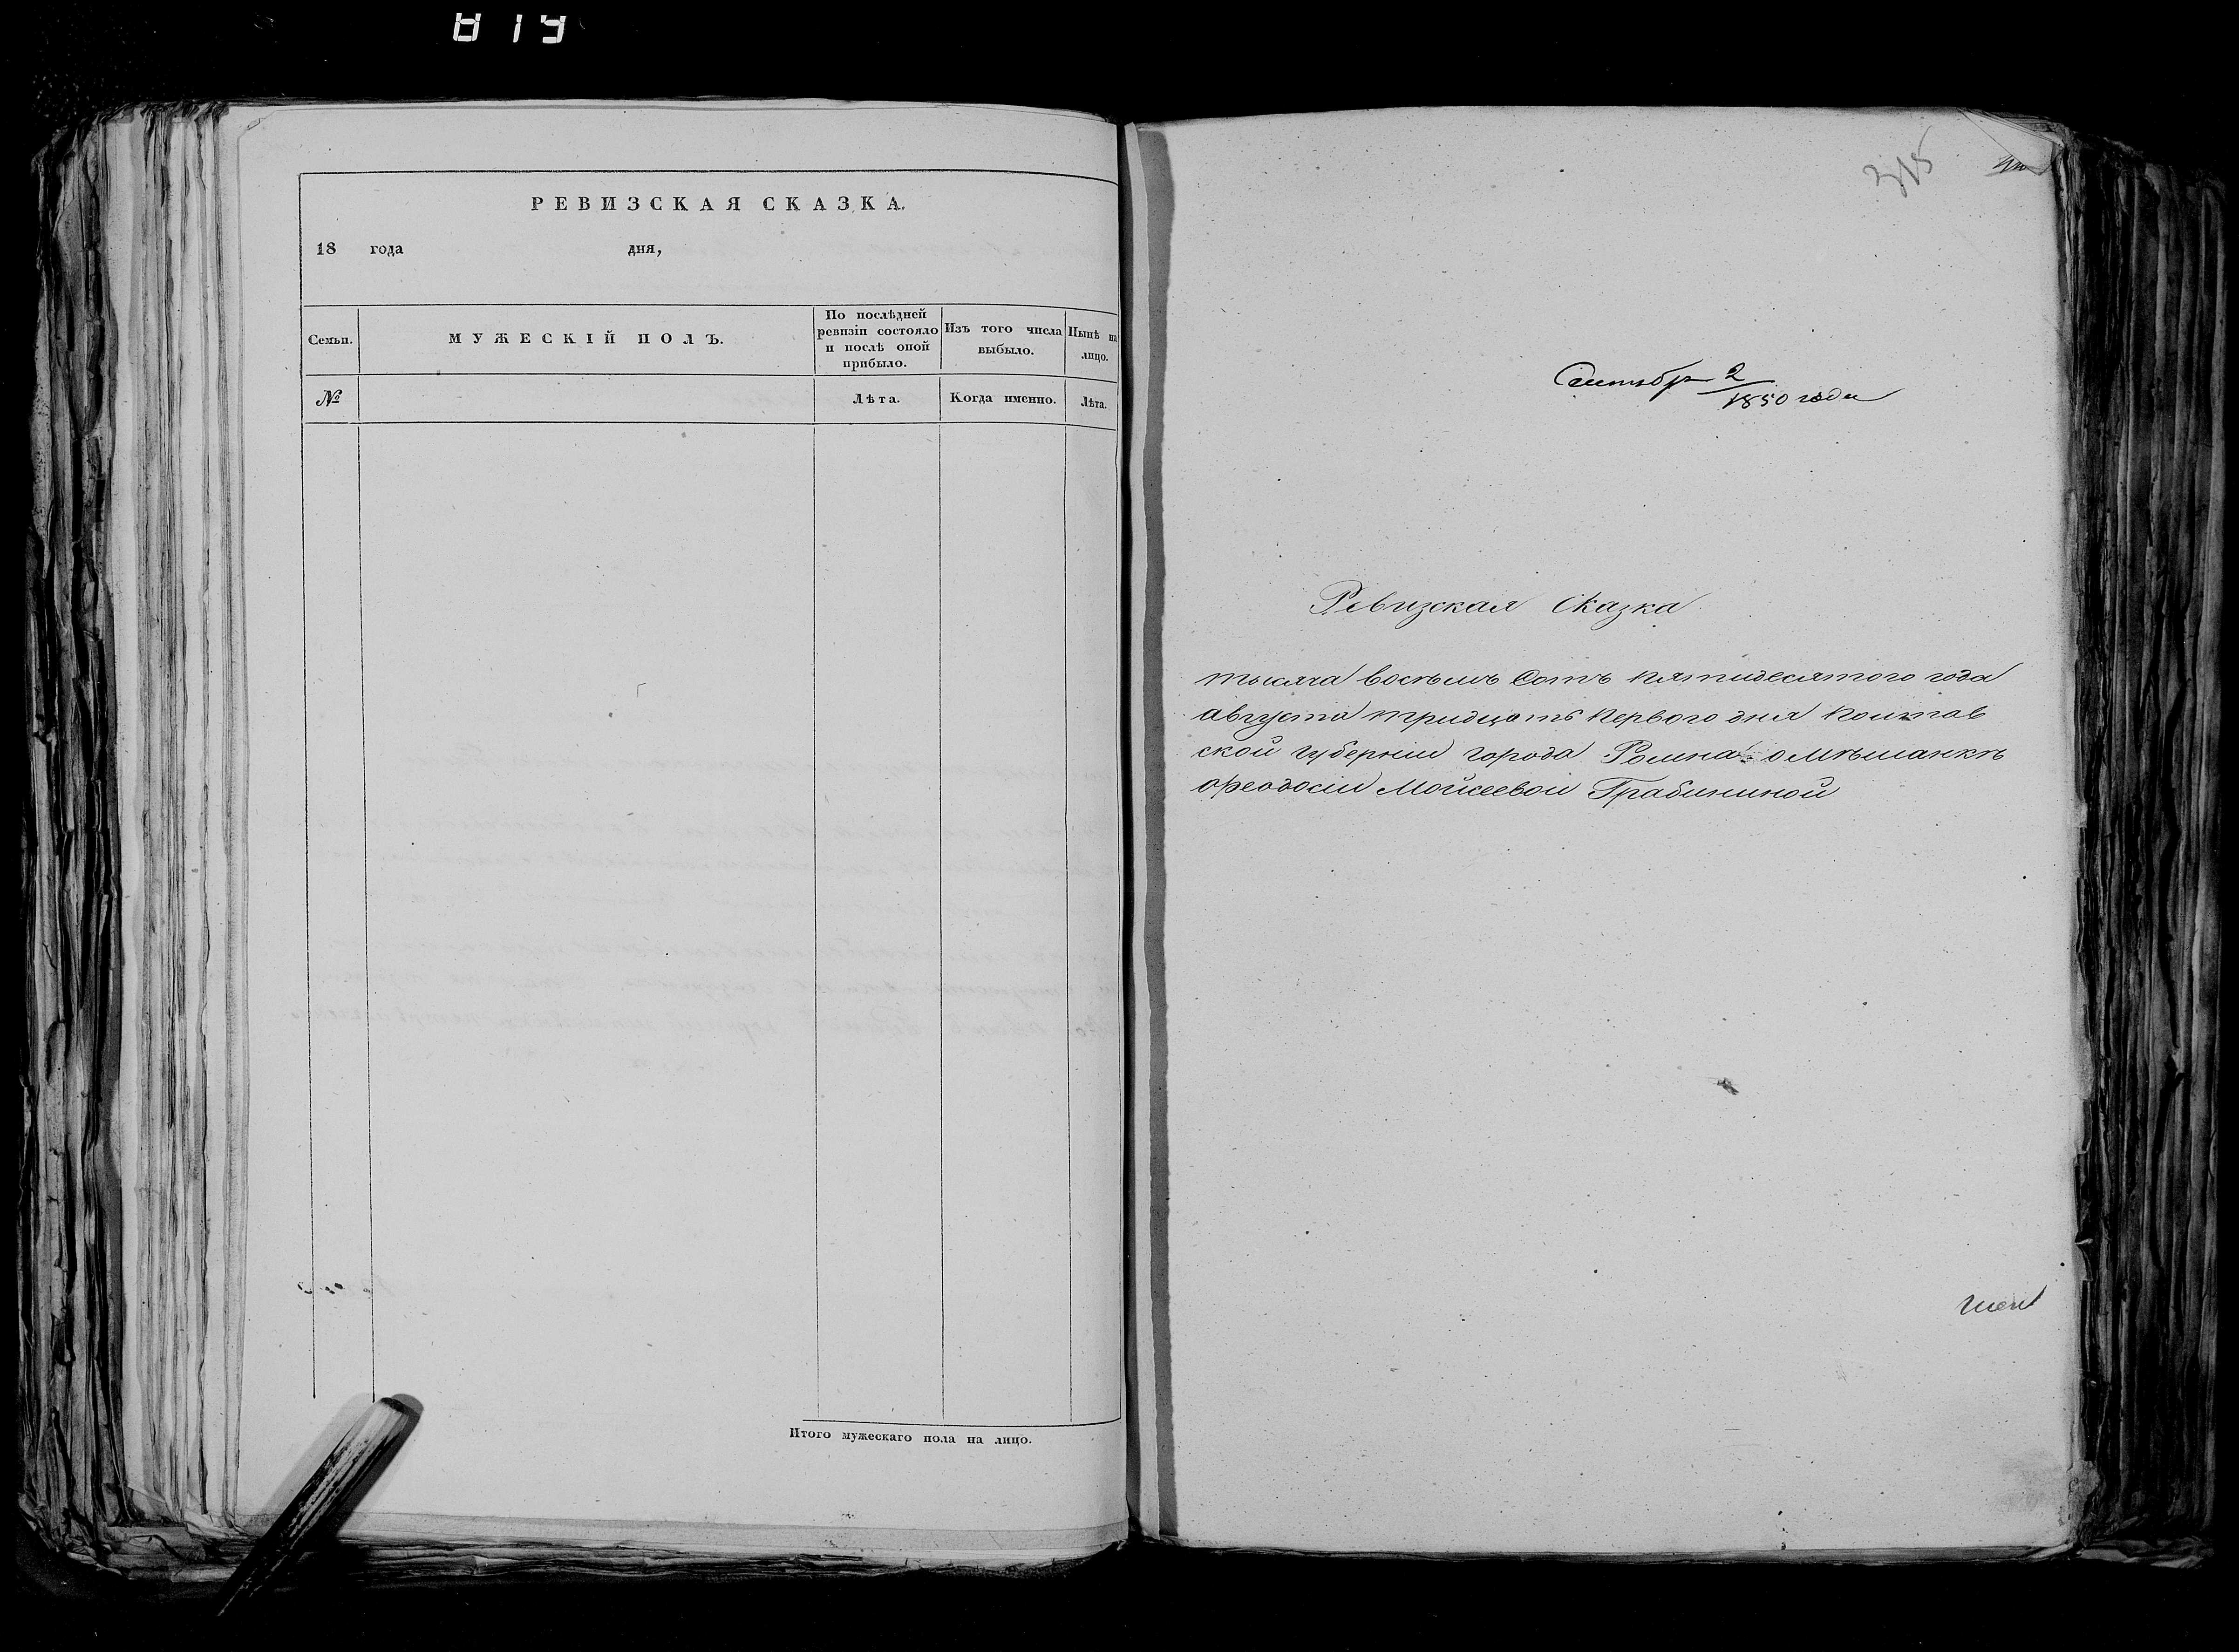 819
РЕВИЗСКАЯ СКАЗКА.
18 года дня,
Семьи.
МУЖЕСКІЙ ПОЛЪ.
По послѣдней
ревизіи состояло
и послѣ оной
прибыло.
Изъ того числа
выбыло.
Нынѣ на
лицо.
№
Лѣта.
Когда именно.
Лѣта.
Итого мужескаго пола на лицо.
315
Сентябр 2
1850 года
Ревизская Сказка
тысяча восемь Сотъ пятидесятого года
августа тридцать первого дня Полтав
ской губерніи города Ромна о мѣщанкѣ
Феодосіи Мойсеевой Грабининой